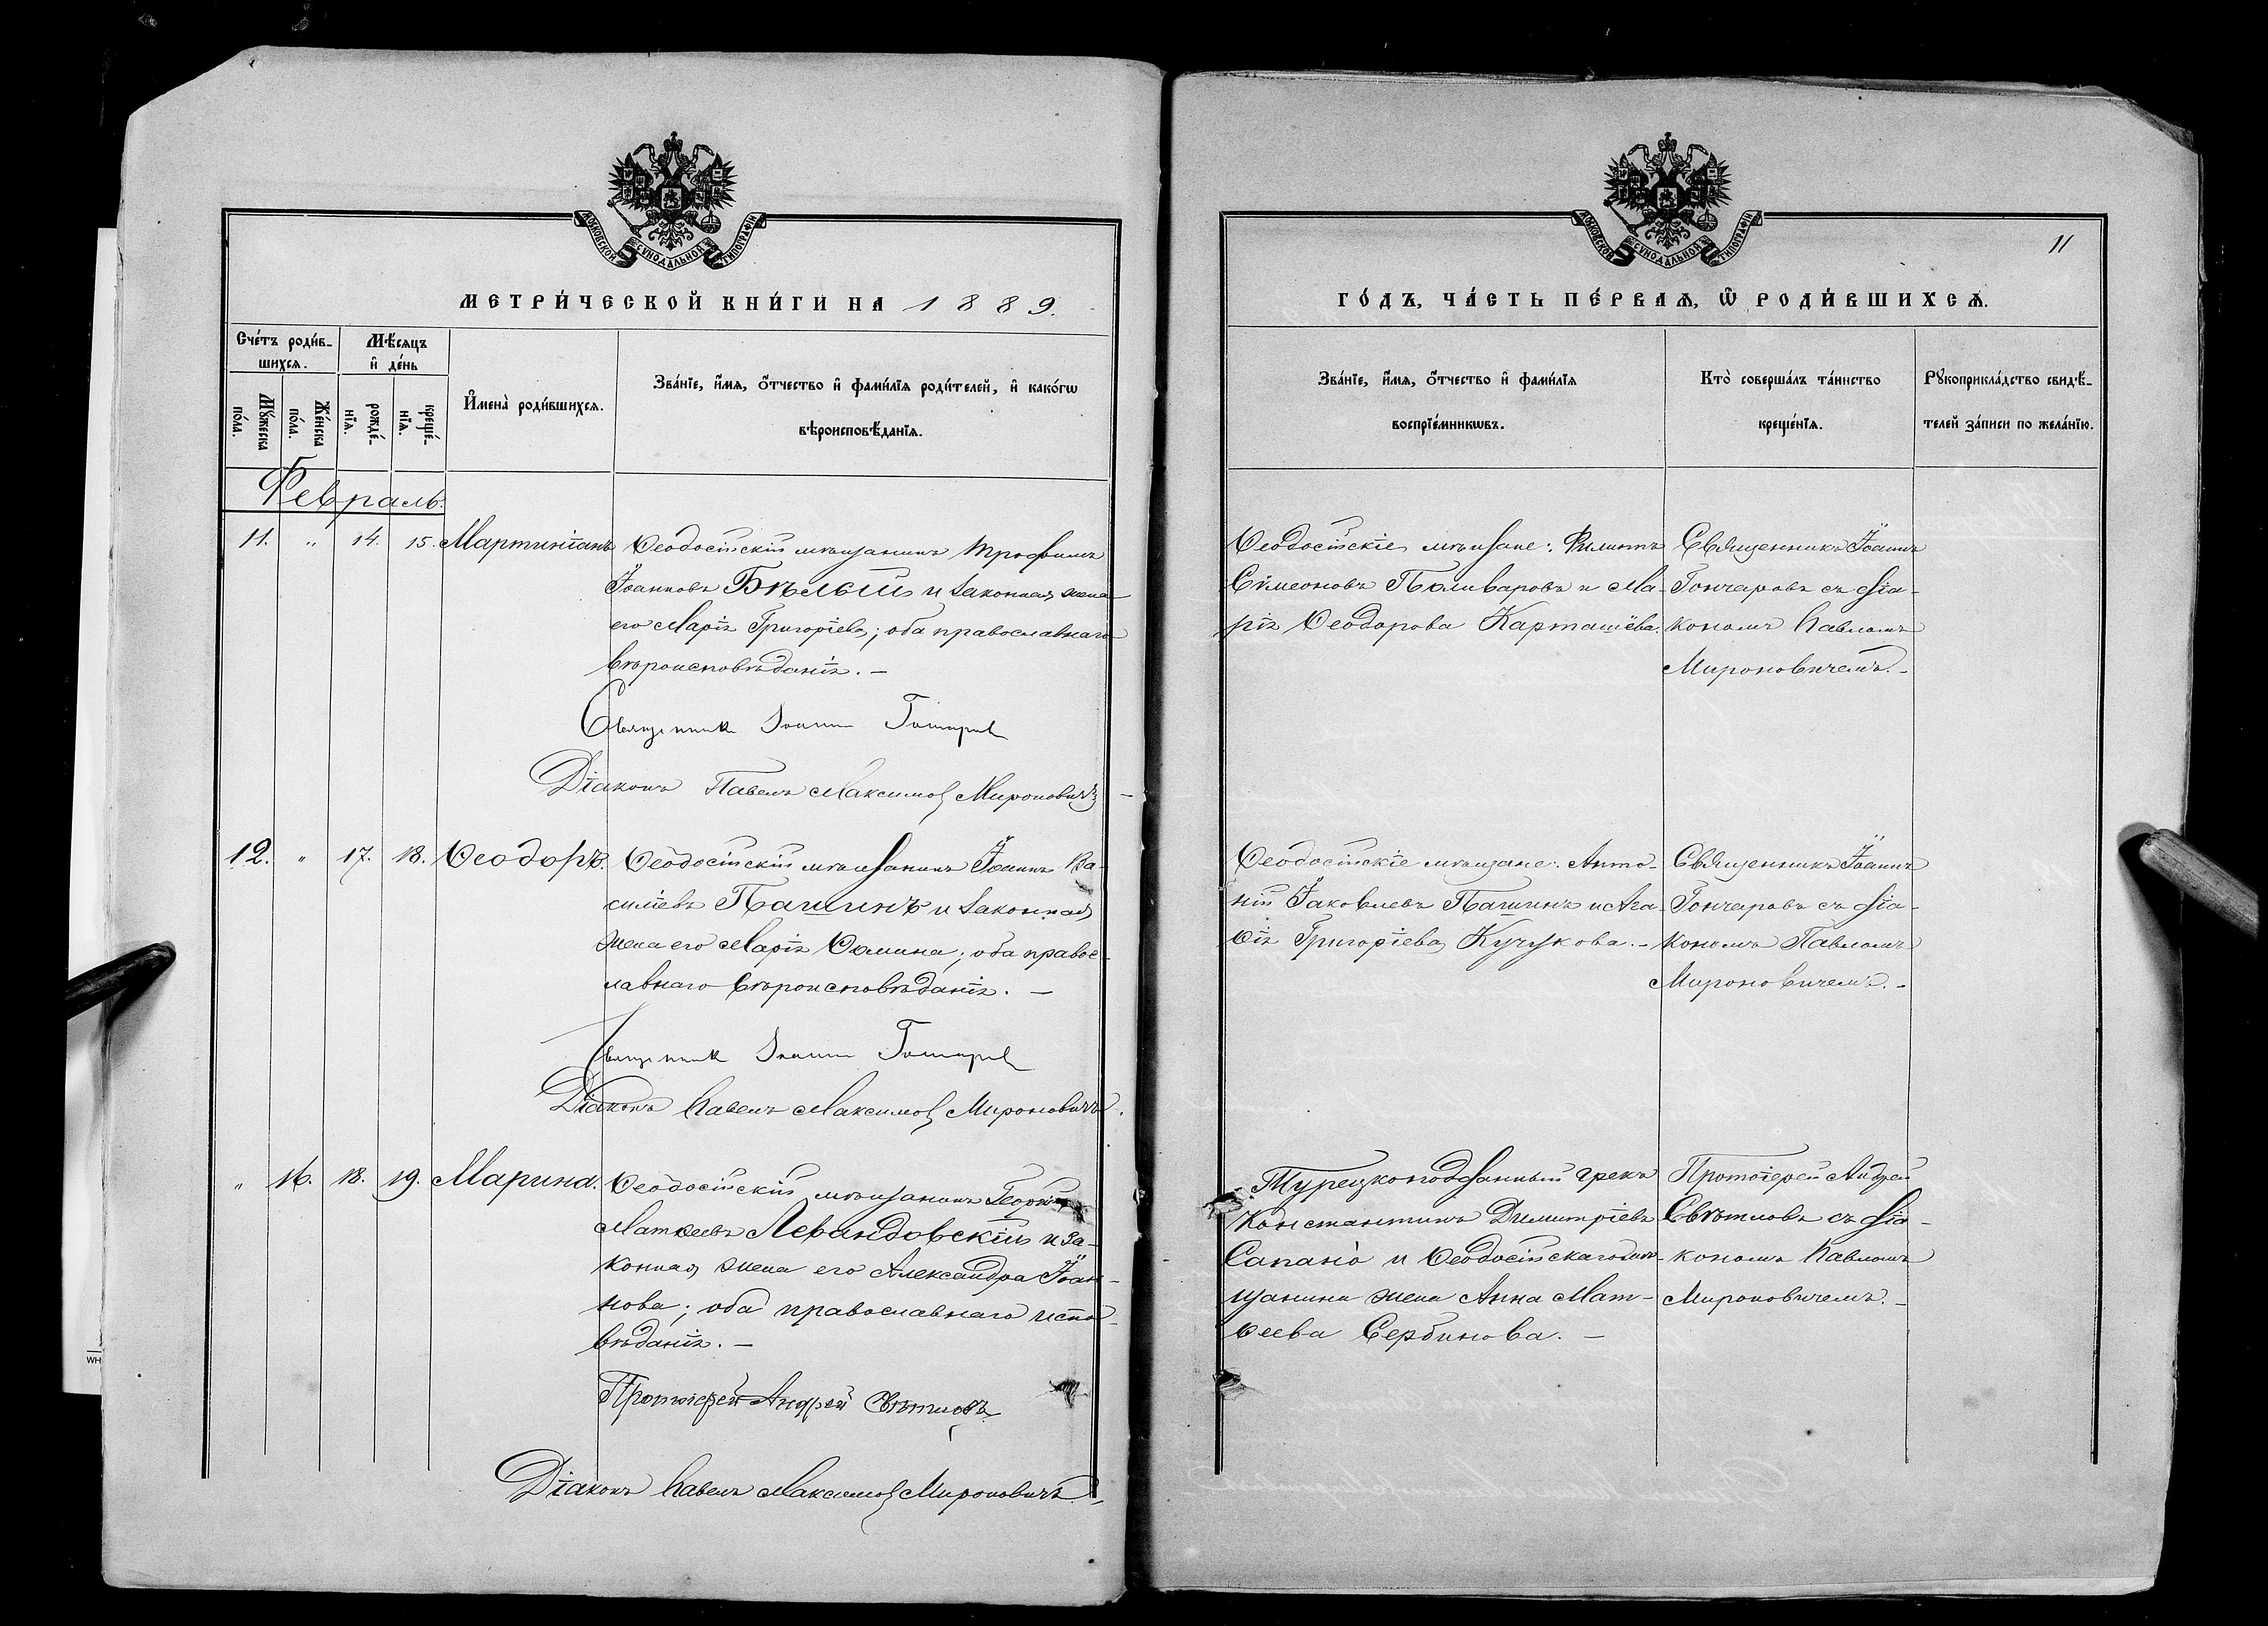 МОСКОВСКОЙ СѴНОДАЛЬНОЙ ТИПОГРАФІИ
МЕТРИ́ЧЕСКОЙ КНИ́ГИ НА 1889.
Сче́тъ роди́в-
шихсѧ.
Мѣ́сѧцъ
и҆ де́нь
Мꙋ́жеска
по́ла.
Же́нска
по́ла.
рожде́-
нїѧ.
креще́-
нїѧ.
И҆мена̀ роди́вшихсѧ.
Зва́нїе, и҆́мѧ, ѻ҆́тчество и҆ фами́лїѧ роди́телей, и҆ како́гѡ
вѣроисповѣ́данїѧ.
Февраль.
11. " 14. 15. Мартиніанъ Ѳеодосійскій мѣщанинъ Трофимъ
Іоанновъ Бѣлый и законная жена
его Марія Григоріева; оба православнаго
вѣроисповѣданія. –
Священник Іоанн Гончаров
Діаконъ Павелъ Максимов Мироновичъ –
12. " 17. 18. Ѳеодоръ. Ѳеодосійскій мѣщанинъ Іоаннъ Ва-
силіевъ Пашинъ и законная
жена его Марія Ѳомина; оба правос-
лавнаго вѣроисповѣданія. –
Священник Іоанн Гончаров
Діаконъ Павелъ Максимов Мироновичъ.
" 16. 18. 19. Марина. Ѳеодосійскій мѣщанинъ Георгій
Матѳеевъ Левандовскій и за-
конная жена его Александра Іоан-
нова; оба православнаго испо-
вѣданія. –
Протоіерей Андрей Свѣтловъ
Діаконъ Павелъ Максимов Мироновичъ.
МОСКОВСКОЙ СѴНОДАЛЬНОЙ ТИПОГРАФІИ
11
ГО́ДЪ, ЧА́СТЬ ПЕ́РВАѦ, Ѽ РОДИ́ВШИХСѦ.
Зва́нїе, и҆́мѧ, ѻ҆́тчество и҆ фами́лїѧ
воспрїе́мникѡвъ.
Кто̀ соверша́лъ та́инство
креще́нїѧ.
Рꙋкоприкла́дство свидѣ́-
телей за́писи по жела́нїю.
Ѳеодосійскіе мѣщане: Филиппъ
Сѷмеоновъ Поливаровъ и Ма-
рія Ѳеодорова Карташёва.
Священникъ Іоаннъ
Гончаровъ съ діа-
кономъ Павломъ
Мироновичемъ. –
Ѳеодосійскіе мѣщане: Анто-
ній Іаковлевъ Пашинъ и Ага-
ѳія Григоріева Кучукова. –
Священникъ Іоаннъ
Гончаровъ съ діа-
кономъ Павломъ
Мироновичемъ. –
Турецкоподданный грекъ
Константинъ Димитріевъ
Сапанò и Ѳеодосійскаго мѣ-
щанина жена Анна Мат-
ѳеева Сербинова. –
Протоіерей Андрей
Свѣтловъ съ діа-
кономъ Павломъ
Мироновичемъ. –
WH